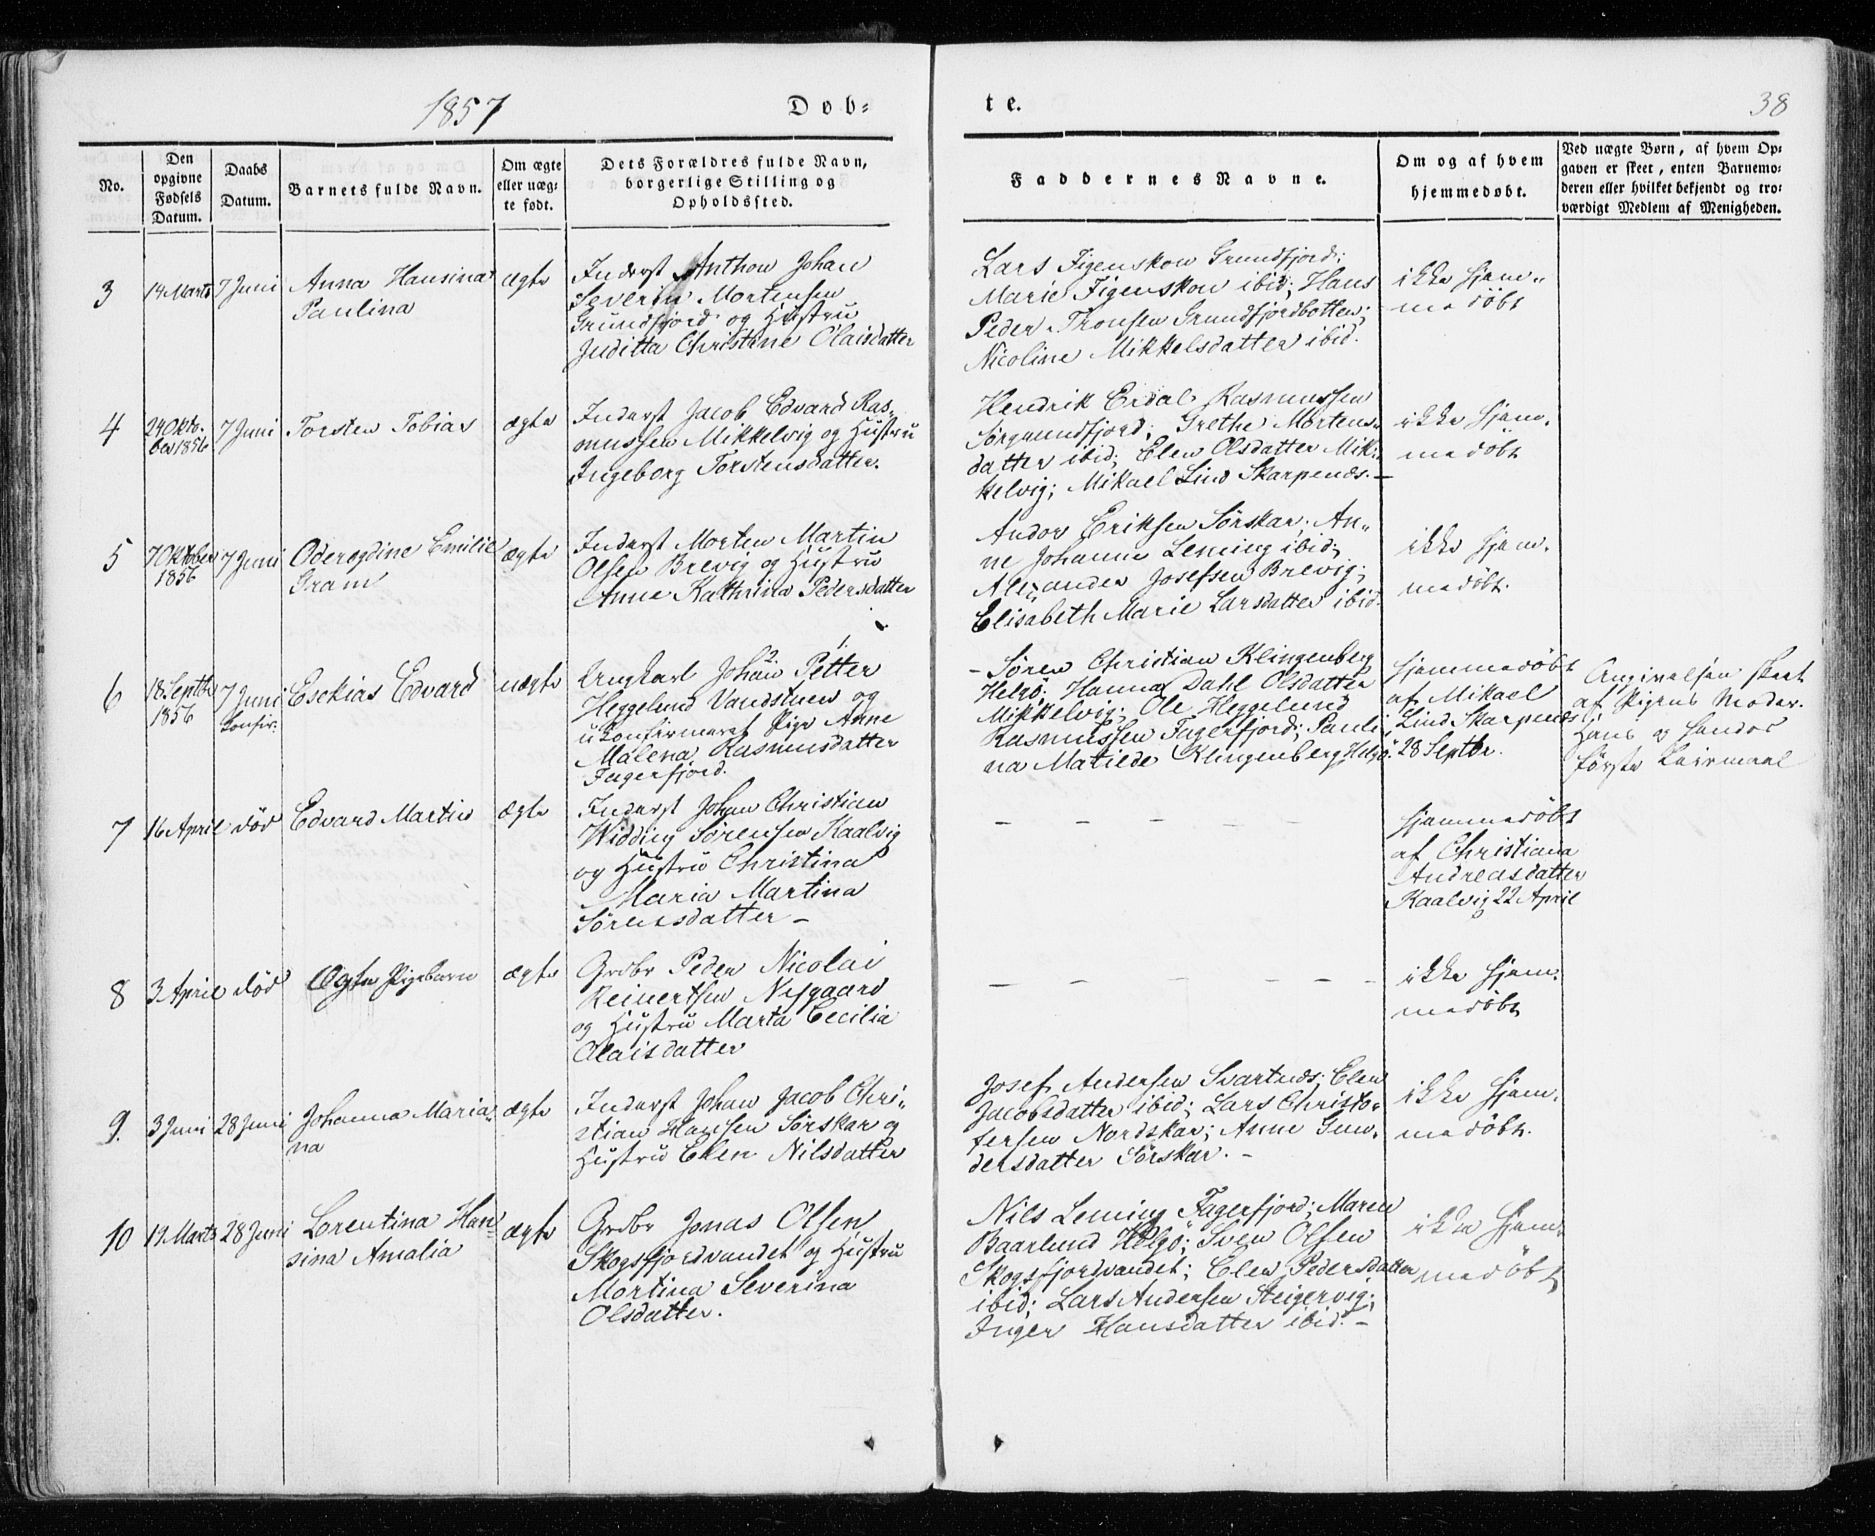 1857
Døb-
te.
38
No.
Den
opgivne
Fødsels
Datum.
Daabs
Datum.
Barnets fulde Navn.
Om ægte
eller uæg-
te født.
Dets Forældres fulde Navn,
borgerlige Stilling og
Opholdssted.
Faddernes Navne.
Om og af hvem
hjemmedøbt.
Ved uægte Børn, af hvem Op-
gaven er skeet, enten Barnemo-
deren eller hvilket bekjendt og tro-
værdigt Medlem af Menigheden.
3
14 Marts
7 Juni
Anna Hansina
Paulina
ægte
Inderst Anthon Johan
Severin Mortensen
Grundfjord og Hustru
Juditta Christine Olaisdatter
Lars Figenskou Grundfjord;
Marie Figenskou ibid; Hans
Peder Tronsen Grundfjordbotten;
Nicoline Mikkelsdatter ibid.
ikke hjem-
medøbt
4
24 Okto-
ber 1856
7 Juni
Torsten Tobias
ægte
Inderst Jacob Edvard Ras-
mussen Mikkelvig og Hustru
Ingeborg Torstensdatter.
Hendrik Erdal Rasmussen
Sørgrundfjord; Grethe Mortens-
datter ibid; Elen Olsdatter Mik-
kelvig; Mikael Lind Skarpenæs.-
ikke hjem-
medøbt
5
7 Oktober
1856
7 Juni
Oderegdine Emilie
Gram
ægte
Inderst Morten Martin
Olsen Brevig og Hustru
Anne Kathrina Pedersdatter
Andor Eriksen Sørskar; An-
ne Johanna Leming ibid;
Alexander Josefsen Brevig;
Elisabeth Marie Larsdatter ibid.
ikke hjem-
medøbt.
6
18 Septbr
1856
7 Juni
konfir.
Esekias Edvard
uægte
2 1
Ungkarl Johan Petter
Heggelund Vandstuen og
ukonfirmeret Pige Anne
Malena Rasmusdatter
Fagerfjord.
- Søren Christian Klingenberg
Helgø; Hanna Dahl Olsdatter
Mikkelvig; Ole Heggelund
Rasmussen Fagerfjord; Pauli-
na Matilde Klingenberg Helgø.
hjemmedøbt
af Mikael
Lind Skarpenæs
28 Septbr.
Angivelsen skeet
af Pigens Moder.
Hans og hendes
første Leiermaal
7
16 April
død
Edvard Martin
ægte
Inderst Johan Christian
Widding Sørensen Kaalvig
og Hustru Christina
Maria Martina
Sørensdatter -
- - - - - -
hjemmedøbt
af Christiana
Andreasdatter
Kaalvig 22 April
8
3 April
død
Ægte Pigebarn
ægte
Grdbr Peder Nicolai
Reinertsen Nygaard
og Hustru Marta Cecilia
Olaisdatter
- - - - - -
ikke hjem-
medøbt
9.
3 Juni
28 Juni
Johanna Maria-
na
ægte
Inderst Johan Jacob Chri-
stian Hansen Sørskar og
Hustru Elen Nilsdatter
Josef Andersen Svartnæs; Elen
Jacobsdatter ibid; Lars Christo-
fersen Nordskar; Anne Gun-
dersdatter Sørskar. -
ikke hjem-
medøbt.
10
19 Marts
28 Juni
Lorentina Han-
sina Amalia
ægte
Grdbr Jonas Olsen
Skogsfjordvandet og Hustru
Mortina Severina
Olsdatter.
Nils Leming Fagerfjord; Maren
Baarlund Helgø; Sven Olsen
Skogsfjordvandet; Elen Pedersdatter
ibid; Lars Andersen Steigervig;
Inger Hansdatter ibid. -
ikke hjem-
medøbt